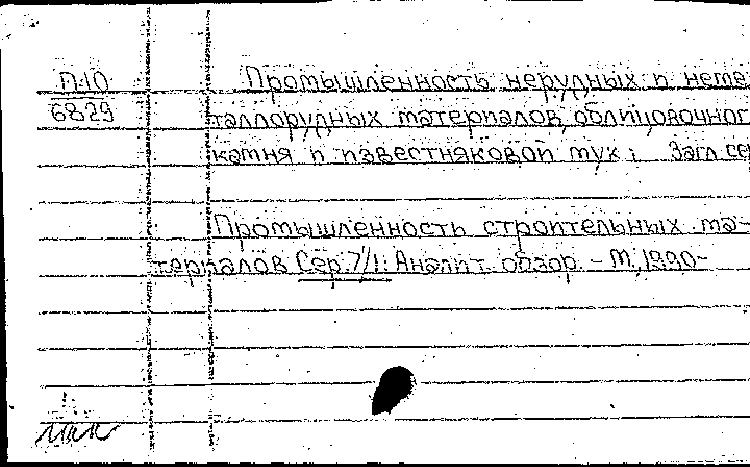 П-10
6829
Промышленность нерудных и неме-
таллорудных материалов, облицовочног
камня и известняковой мук: Загл. се
Промышленность строительных ма-
териалов Сер. 7/1: Аналит. обзор. - М, 1990-